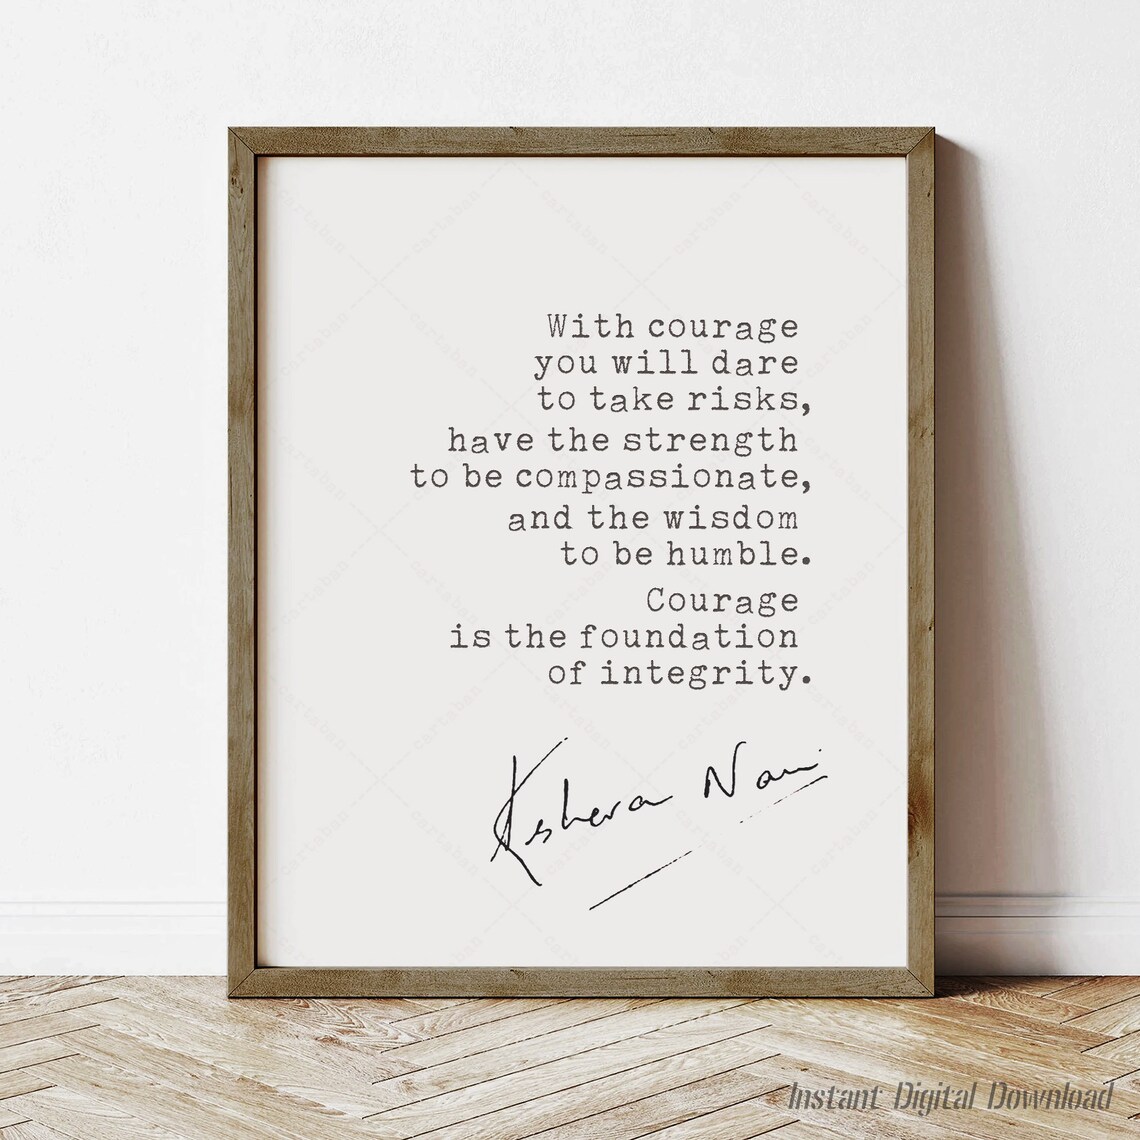 With courage
you will dare
to take risks,
have the strength
to be compassionate,
and the wisdom
to be humble.
Courage
is the foundation
of integrity.
Keshava Nair
Instant Digital Download